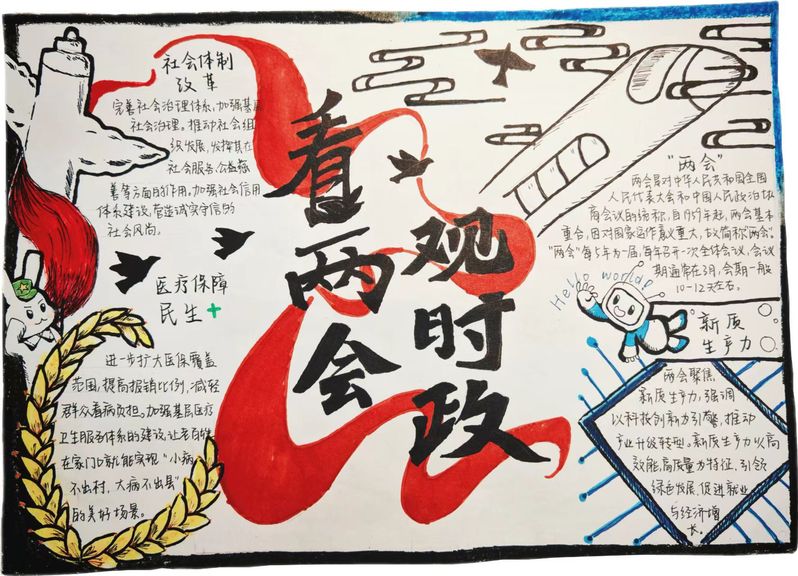 看两会
观时政
社会体制
改革
完善社会治理体系,加强基层
社会治理。推动社会组
织发展,发挥其在
社会服务、公益慈
善等方面的作用。加强社会信用
体系建设,营造诚实守信的
社会风尚。
医疗保障
民生+
进一步扩大医保覆盖
范围,提高报销比例,减轻
群众看病负担。加强基层医疗
卫生服务体系的建设,让老百姓
在家门口就能实现“小病
不出村,大病不出县”
的美好场景。
“两会”
两会是对中华人民共和国全国
人民代表大会和中国人民政治协
商会议的统称,自1959年起,两会基本
重合,因对国家运作最义重大,故简称“两会”。
“两会”每5年为一届,每年召开一次全体会议,会议
期通常在3月,会期一般
10-12天左右。
Hello world!
新质
生产力
两会聚焦
新质生产力,强调
以科技创新为引擎,推动
产业升级转型。新质生产力以高
效能,高质量为特征,引领
绿色发展,促进就业
与经济增
长。